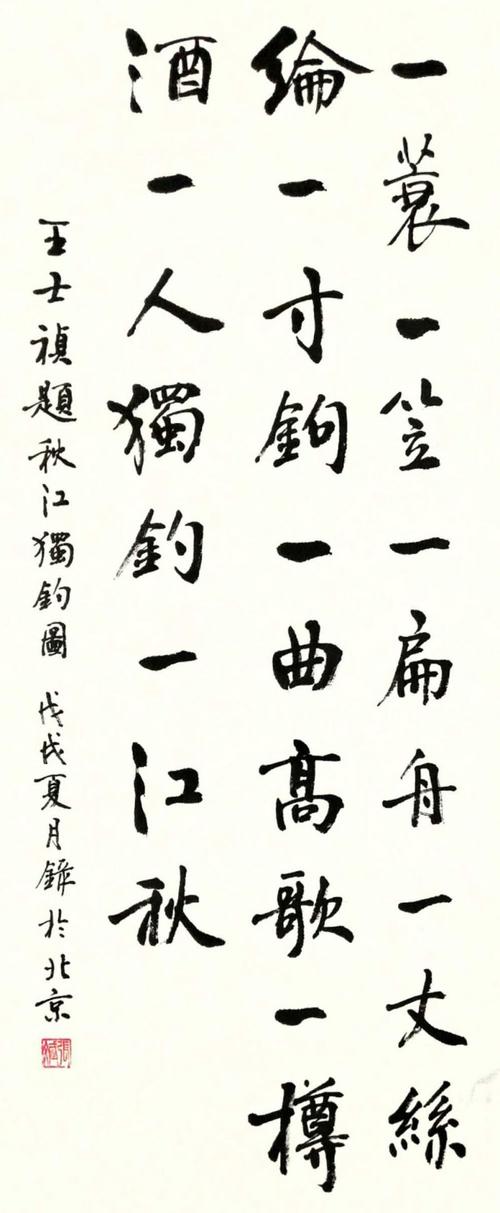 一蓑一笠一扁舟一丈絲
綸一寸鉤一曲髙歌一樽
酒一人獨釣一江秋
王士禎題秋江獨釣圖 戊戌夏月於北京